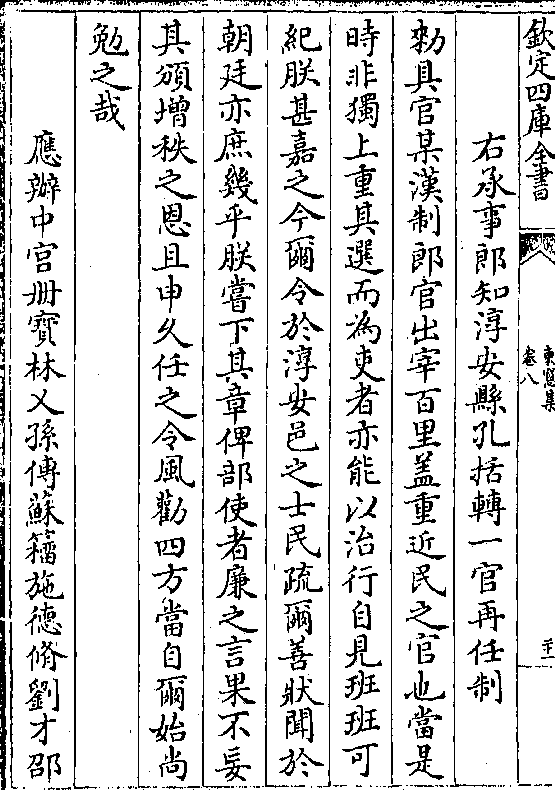 欽定四庫全書
東牕集
卷八
二十一
右承事郎知淳安縣孔括轉一官再任制
勑具官某漢制郎官出宰百里盖重近民之官也當是
時非獨上重其選而為吏者亦能以治行自見班班可
紀朕甚嘉之今爾令於淳安邑之士民疏爾善狀聞於
朝廷亦庶幾乎朕嘗下其章俾部使者廉之言果不妄
其頒增秩之恩且申久任之令風勸四方當自爾始尚
勉之哉
應辦中宫册寳林乂孫傅蘇籀施徳脩劉才邵